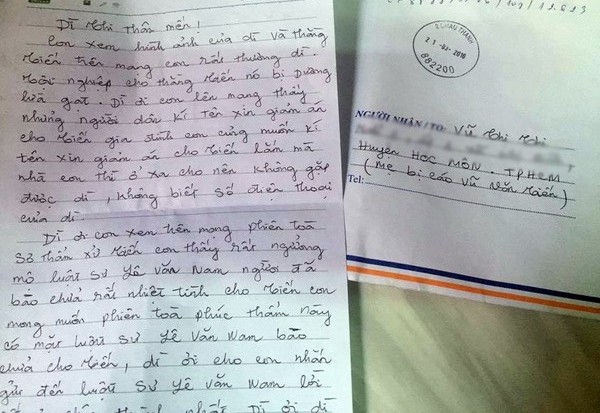 Dì Nhi thân mến!
Con xem hình ảnh của dì và thằng
Miến trên mạng con rất thương dì.
Mới nghiệp cho thằng Miến nó bị Dương
lừa gạt. Dì ơi con lên mạng thấy
những người dân kí tên xin giảm án
cho Miến gia đình con cũng muốn kí
tên xin giảm án cho Miến lắm mà
nhà con thì ở xa cho nên không gặp
được dì, không biết số điện thoại
của dì
Dì ơi con xem trên mạng phiên toà
Sơ thẩm xử Miến con thấy rất ngưỡng
mộ luật sư Lê Văn Nam người đã
bào chữa rất nhiệt tình cho Miến con
mong muốn phiên toà phúc thẩm này
có mặt luật sư Lê Văn Nam bào
chữa cho Miến, dì ơi cho con nhắn
gửi đến luật sư Lê Văn Nam lời
nhất. Dì ơi dì
CHAU THANH
2016
882200
NGƯỜI NHẬN/TO: Vũ Nhi Nhi
Huyện HÓC MÔN. TPHCM
(Mẹ bị cáo Vũ Văn Miến)
Tel: